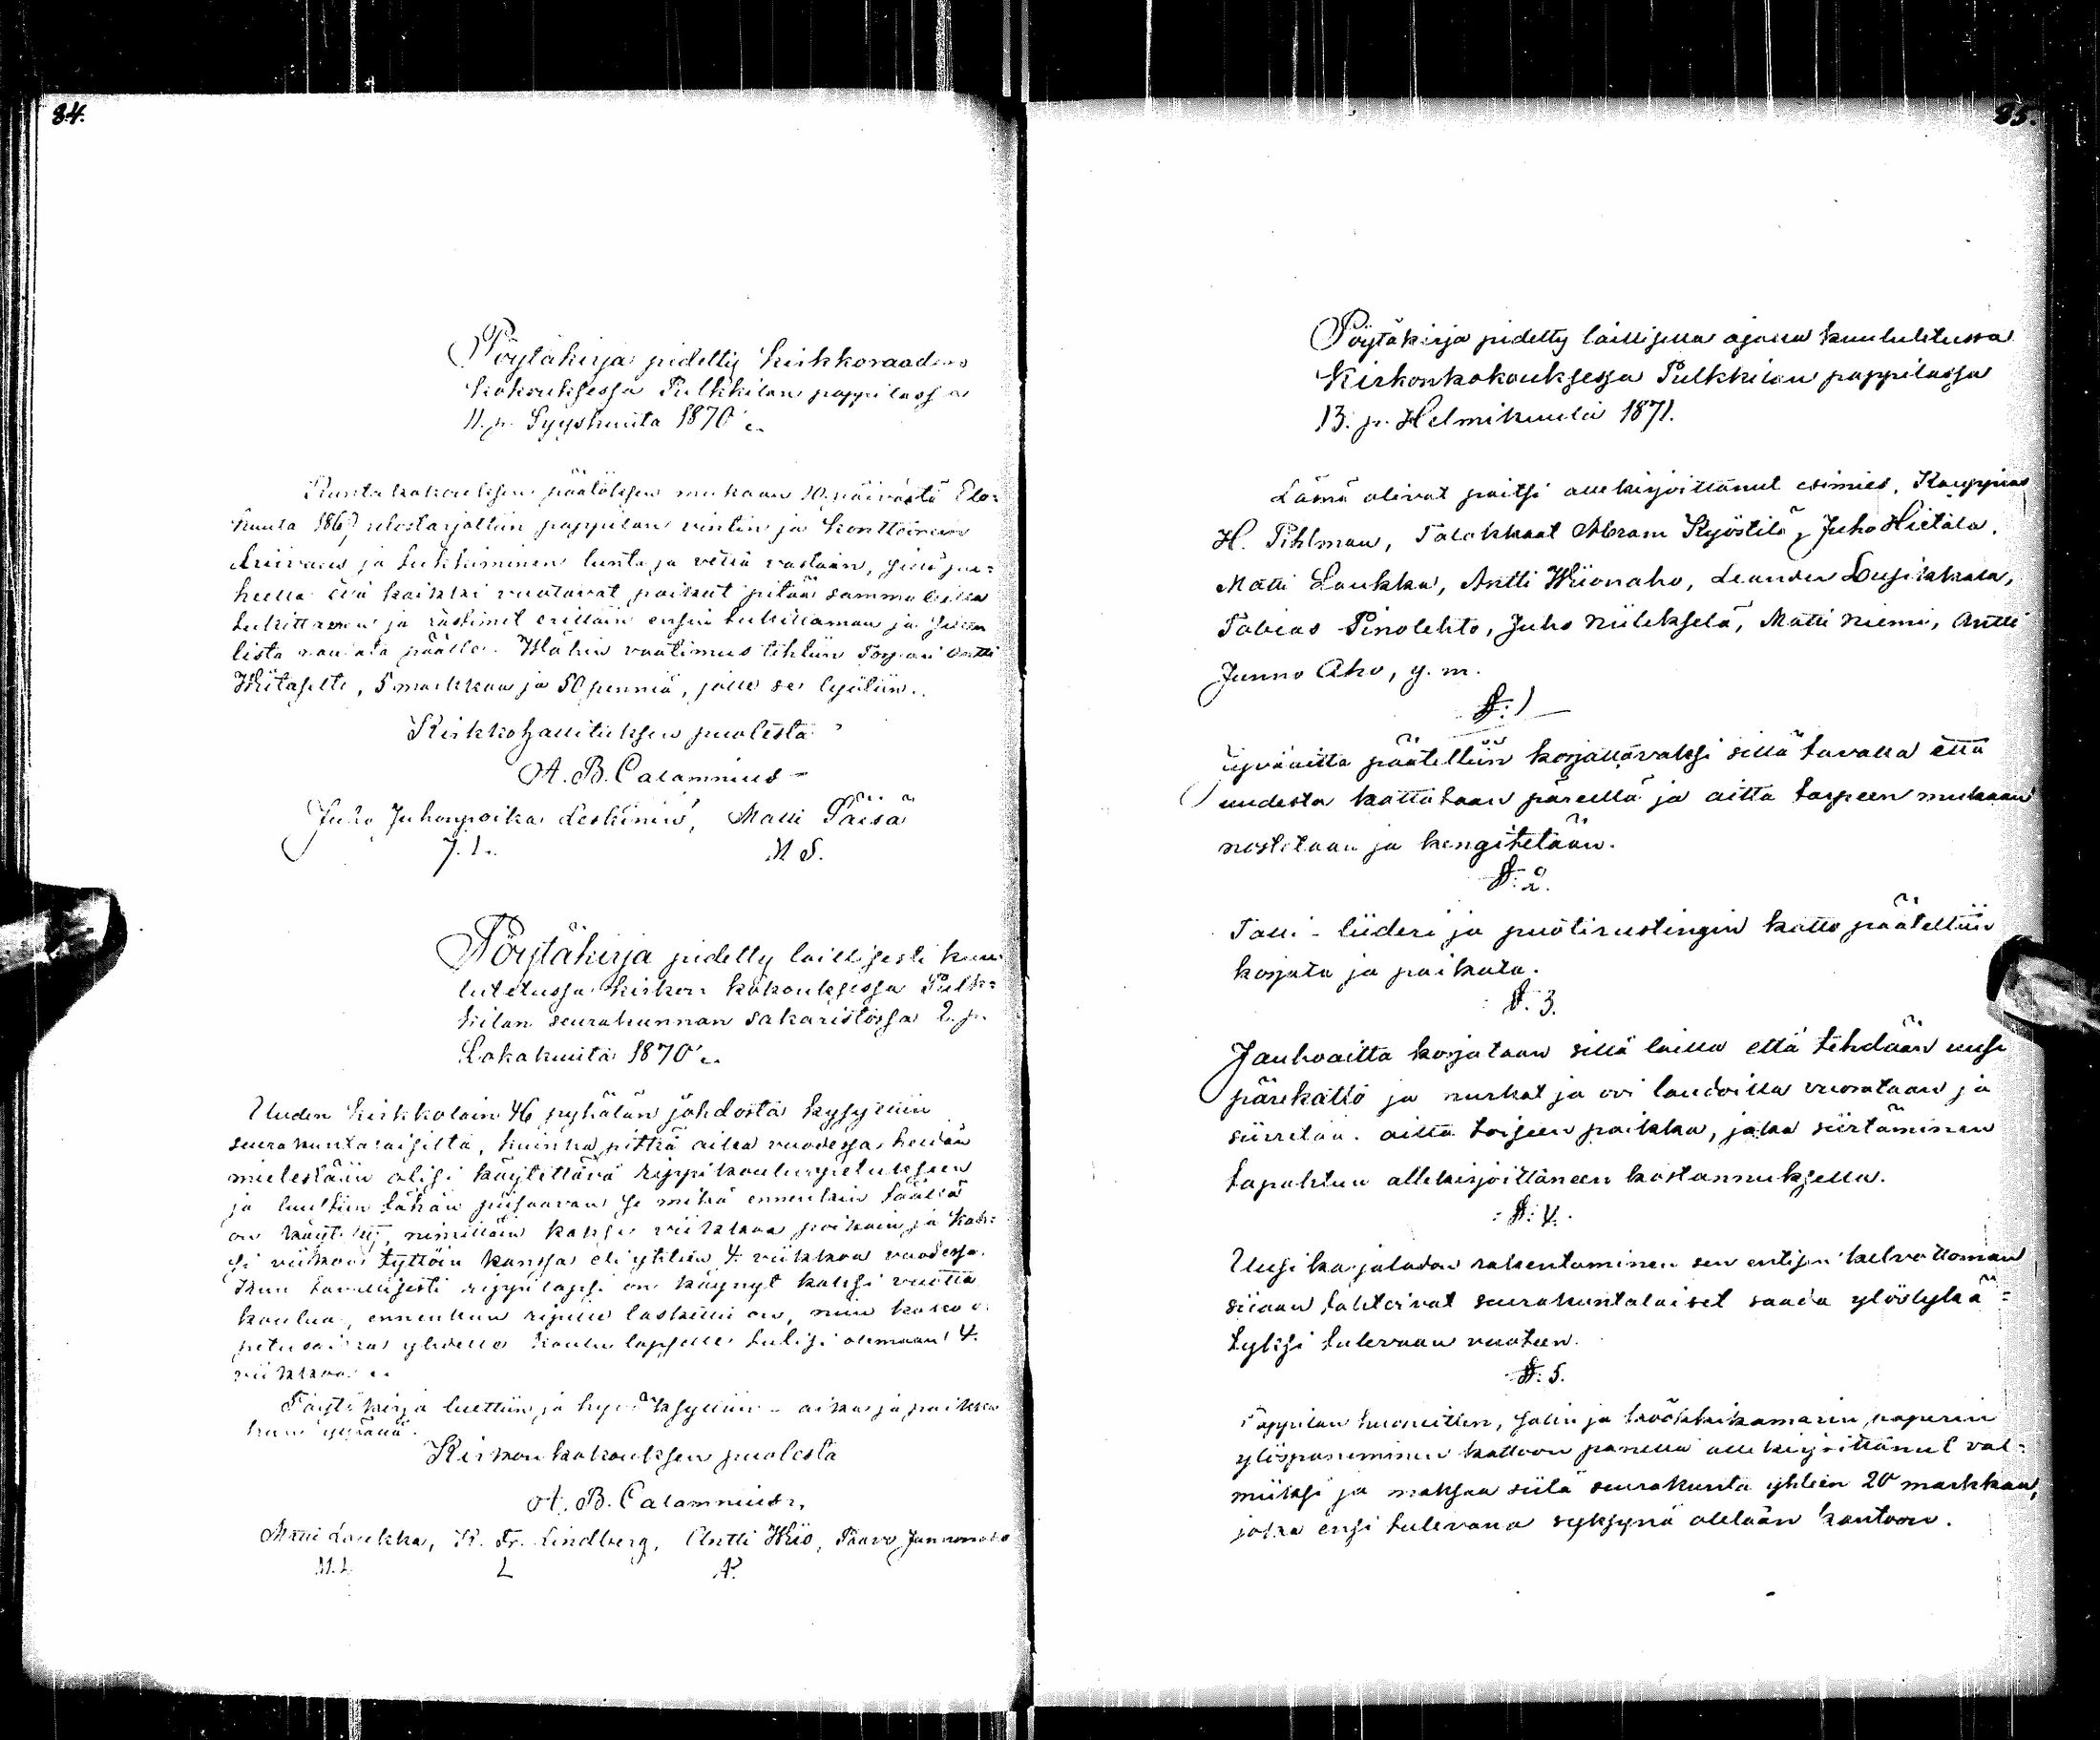 84.
Pöytäkirja pidetty kirkkoraadin
kokouksessa Pulkkilan pappilassa
11. p. Syyskuuta 1870
Kuntakokouksen päätöksen mukaan 10 päivästä Elo=
kuuta 186 ulostarjottiin pappilan vintin ja konttoirein
ja tukkiminen lunta ja vettä vastaan,
että kaikki vuotavat paikat pitää sammaleilla
tukittaman ja erilläin ensin tukittaman ja
lista naulata päälle. Wähin vaatimus tehtiin Torpari Antti
Wiitaselta, 5 markkaa ja 50 penniä, jolle se lyötiin.
Kirkkohallituksen puolesta
A. B. Calamnius
Juho Juhonpoika Leskinen, Matti Päisä
J. L. M S.
Pöytäkirja pidetty laillisesti kuu
lutetussa kirkon kokouksessa Pulk=
kilan seurakunnan sakaristossa 2. p.
Lokakuuta 1870
Uuden kirkkolain 46 pykälän johdosta kysyttiin
seurakuntalaisilta, kuinka pitkä aika vuodessa heidän
mielestään olisi käytettävä rippikouluopetukseen
ja luultiin tähän piisaavan se mikä ennenkin täällä
on käytetty, nimittäin kaksi viikkoa poikain ja kak=
si viikkoa tyttöin kanssa eli yhteen 4 viikkoa vuodessa.
Kun tavallisesti rippilapsi on käynyt kaksi vuotta
koulua, ennenkun ripille laskettu on, niin koko o
petusaika yhdelle koulu lapselle tulisi olemaan 4.
viikkoa.
Pöytäkirja luettiin ja hyväksyttiin - aika ja paikka
kun yllänä.
Kirkon kokouksen puolesta
A. B. Calamnius
Matti Laukka, K. Fr. Lindberg, Antti Wiio, Paavo Junnonaho
M. L L A.
85.
Pöytäkirja pidetty laillisella ajalla kuulutetussa
Kirkonkokouksessa Pulkkilan pappilassa
13. p. Helmikuuta 1871.
Läsnä olivat paitsi allekirjoittanut esimies, Kauppias
H. Pihlman, Talokkaat Abram Kyöstilä, Juho Hietala,
Matti Laukka, Antti Wiionaho, Leander Lusikkala,
Tobias Pinolehto, Juho Niileksela, Matti Niemi, Antti
Junno Aho, y. m.
§: 1
Jyväaitta päätettiin korjattavaksi sillä tavalla että
uudesta katetaan päreillä ja aitta tarpeen mukaan
nostetaan ja kengitetään.
§: 2.
Talli- liideri ja puotirustingin katto päätettiin
korjata ja paikata.
§. 3.
Jauhoaitta korjataan sillä lailla että tehdään uusi
pärekatto ja nurkat ja ovi laudoilla vuorataan ja
siirretään aitta toiseen paikkaan, joka siirtäminen
tapahtuu allekirjoittaneen kostannuksella.
§: 4.
Uusi karjaladon rakentaminen sen entisen kelvottoman
siaan tahtoivat seurakuntalaiset saada ylöslykä=
tyksi tulevaan vuoteen.
§. 5.
Pappilan huoneitten, salin ja köökkikamarin paperin
ylöspaneminen kattoon panetta allekirjoittanut val=
miiksi ja maksaa siitä seurakunta yhteen 20 markkaa,
jotka ensi tulevana syksynä otetaan kantoon.